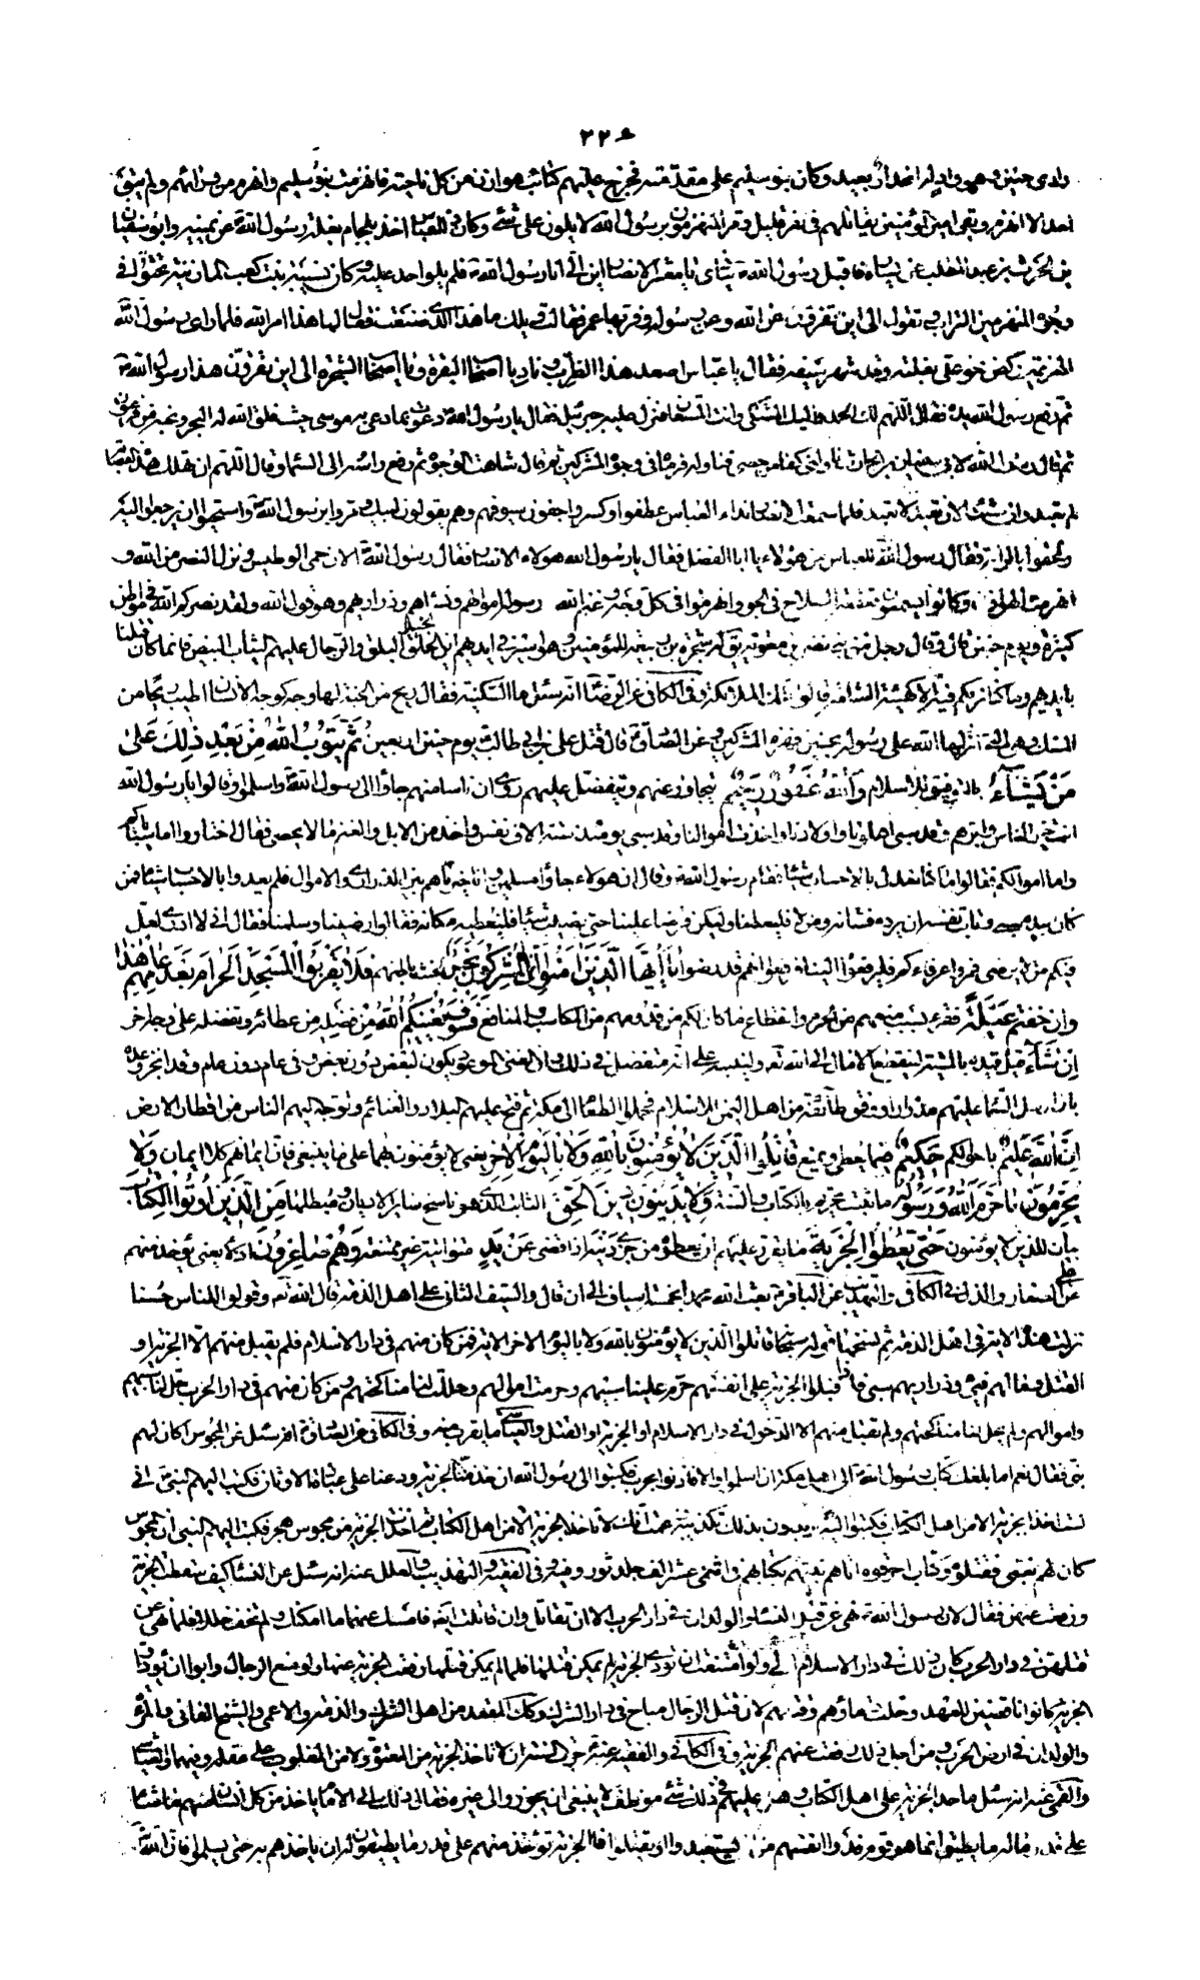 ٢٢٤
وادى حنين وهو واد له انحدار بعيد وكان بنو سليم على مقدمته فخرج عليهم كتائب هوازن من كل ناحية فانهزمت بنو سليم وانهزم من ورائهم ولم يبق
احد الا انهزم وبقى امير المؤمنين يقاتلهم فى نفر قليل ومر المنهزمون برسول الله لا يلوون على شئ وكان العباس اخذ بلجام بغلة رسول الله عن يمينه وابو سفيان
بن الحرث بن عبد المطلب عن يساره فاقبل رسول الله ينادى يا معشر الانصار الى اين انا رسول الله فلم يلو احد عليه وكان نسيبة بنت كعب المازنية تحثو فى
وجوه المنهزمين التراب وتقول الى اين تفرون عن الله وعن رسوله ومر بها عمر فقالت ويلك ما هذا الذى صنعت فقال لها هذا امر الله فلما راى رسول الله
الهزيمة ركض نحو على بغلته وقد شهر سيفه فقال يا عباس اصعد هذا الظرب وناد يا اصحاب البقرة ويا اصحاب الشجرة الى اين تفرون هذا رسول الله
ثم رفع رسول الله يده فقال اللهم لك الحمد واليك المشتكى وانت المستعان فنزل عليه جبرئيل فقال يا رسول الله دعوت بما دعى به موسى حيث فلق الله له البحر ونجيه من فرعون
ثم قال رسول الله لابى سفيان بن الحارث ناولنى كفا من حصى فناوله فرماه فى وجوه المشركين ثم قال شاهت الوجوه ثم رفع راسه الى السماء وقال اللهم ان تهلك هذه العصابة
لم تعبد وان شئت ان لا تعبد لا تعبد فلما سمعت الانصار نداء العباس عطفوا وكسروا جفون سيوفهم وهم يقولون لبيك ومروا برسول الله واستحيوا ان يرجعوا اليه
ولحقوا بالراية فقال رسول الله للعباس من هؤلاء يا ابا الفضل فقال يا رسول الله هؤلاء الانصار فقال رسول الله الان حمى الوطيس ونزل النصر من الله و
انهزمت هوازن وكانوا يسمعون قعقعة السلاح فى الجو وانهزموا فى كل وجه وغنم الله رسوله اموالهم ونساءهم وذراريهم وهو قول الله ولقد نصركم الله فى مواطن
كثيرة ويوم حنين قال وقال رجل من بنى نضر بن معوية يق له شجرة بن ربيعة للمؤمنين وهو اسير فى ايديهم اين الخيل البلق والرجال عليهم الثياب البيض فانما كان قتلنا
بايديهم وما كنا نريكم فيهم الا كهيئة الشامة قالوا تلك الملئكة وفى الكافى عن الرضا انه سئل ما السكينة فقال ريح من الجنة لها وجه كوجه الانسان اطيب ريحا من
المسك وهى التى انزلها الله على رسوله بحنين فهزم المشركين وعن الصادق قال قتل على بن ابى طالب يوم حنين اربعين ثُمَّ يَتُوبُ اللهُ مِنْ بَعْدِ ذٰلِكَ عَلىٰ
مَنْ يَشَآءُ بالتوفيق للاسلام وَاللهُ غَفُورٌ رَحِيمٌ يتجاوز عنهم ويتفضل عليهم روى ان اناسا منهم جاؤا الى رسول الله واسلموا وقالوا يا رسول الله
انت خير الناس وابرهم وقد سبى اهلونا واولادنا واخذت اموالنا وقد سبى يومئذ ستة الاف نفس واخذ من الابل والغنم ما لا يحصى فقال اختاروا اما سباياكم
واما اموالكم فقالوا ما كنا نعدل بالاحساب شيئا فقام رسول الله وقال ان هؤلاء جاؤا مسلمين وانا خيرناهم بين الذرارى والاموال فلم يعدلوا بالاحساب شيئا فمن
كان بيده سبى وطابت نفسه ان يرده فشانه ومن لا فليعطنا وليكن قرضا علينا حتى نصيب شيئا فنعطيه مكانه فقالوا رضينا وسلمنا فقال انى لا ادرى لعل
فيكم من لا يرضى فمروا عرفاءكم فليرفعوا الينا فرفعوا انهم قد رضوا يٰا أَيُّهَا الَّذِينَ آمَنُوا إِنَّمَا الْمُشْرِكُونَ نَجَسٌ لخبث باطنهم فَلٰا يَقْرَبُوا الْمَسْجِدَ الْحَرٰامَ بَعْدَ عٰامِهِمْ هٰذٰا
وَإِنْ خِفْتُمْ عَيْلَةً فقرا بسبب منعهم من الحرم وانقطاع ما كان لكم من قدومهم من المكاسب والمنافع فَسَوْفَ يُغْنِيكُمُ اللهُ مِنْ فَضْلِهِ من عطائه وتفضله على وجه اخر
إِنْ شٰآءَ قيل قيده بالمشية لينقطع الامال الى الله تعه ولينبه على انه متفضل فى ذلك وان الغنى الموعود يكون لبعض دون بعض وفى عام دون عام وقد انجز وعده
بان ارسل السماء عليهم مدرارا ووفق طائفة من اهل اليمن للاسلام فحملوا الطعام الى مكة ثم فتح عليهم البلاد والغنائم وتوجه اليهم الناس من اقطار الارض
إِنَّ اللهَ عَلِيمٌ باحوالكم حَكِيمٌ فيما يعطى ويمنع قٰاتِلُوا الَّذِينَ لٰا يُؤْمِنُونَ بِاللهِ وَلٰا بِالْيَوْمِ الْآخِرِ يعنى لا يؤمنون بهما على ما ينبغى فان ايمانهم كلا ايمان وَلٰا
يُحَرِّمُونَ مٰا حَرَّمَ اللهُ وَرَسُولُهُ ما ثبت تحريمه بالكتاب والسنة وَلٰا يَدِينُونَ دِينَ الْحَقِّ الثابت الذى هو ناسخ ساير الاديان ومبطلها مِنَ الَّذِينَ أُوتُوا الْكِتٰابَ
بيان للذين لا يؤمنون حَتّٰى يُعْطُوا الْجِزْيَةَ ما يقرر عليهم ان يعطوه من جزى دينه اذا قضى عَنْ يَدٍ مؤاتية غير ممتنعة وَهُمْ صٰاغِرُونَ اذلاء يعنى يؤخذ منهم
على الصغار والذل فى الكافى والتهذيب عن الباقر بعث الله محمدا بخمسة اسياف الى ان قال والسيف الثانى على اهل الذمة قال الله تع وقولوا للناس حسنا
نزلت هذه الاية فى اهل الذمة ثم نسخها قوله سبحانه قاتلوا الذين لا يؤمنون بالله ولا باليوم الاخر الاية فمن كان منهم فى دار الاسلام فلم يقبل منهم الا الجزية او
القتل ومالهم فئ وذراريهم سبى فاذا قبلوا الجزية على انفسهم حرم علينا سبيهم وحرمت اموالهم وحلت لنا مناكحتهم ومن كان منهم فى دار الحرب حل لنا سبيهم
واموالهم ولم يحل لنا مناكحتهم ولم يقبل منهم الا الدخول فى دار الاسلام او الجزية او القتل والعياشى ما يقرب منه وفى الكافى عن الصادق انه سئل عن المجوس اكان لهم
نبى فقال نعم اما بلغك كتاب رسول الله الى اهل مكة ان اسلموا والا نابذتكم بحرب فكتبوا الى رسول الله ان خذ منا الجزية ودعنا على عبادة الاوثان فكتب اليهم النبى انى
لست اخذ الجزية الا من اهل الكتاب فكتبوا اليه يريدون بذلك تكذيبه زعمت انك لا تاخذ الجزية الا من اهل الكتاب ثم اخذت الجزية من مجوس هجر فكتب اليهم النبى ان المجوس
كان لهم نبى فقتلوه وكتاب احرقوه اتاهم نبيهم بكتابهم فى اثنى عشر الف جلد ثور وفيه وفى الفقيه والتهذيب والعلل عنه انه سئل عن النساء كيف سقطت الجزية
ورفعت عنهن فقال لان رسول الله نهى عن قتل النساء والولدان فى دار الحرب الا ان تقاتل وان قاتلت ايضا فامسك عنها ما امكنك ولم تخف خللا فلما نهى عن
قتلهن فى دار الحرب كان ذلك فى دار الاسلام اولى ولو امتنعت ان تؤدى الجزية لم يمكن قتلها فلما لم يمكن قتلها رفعت الجزية عنها ولو منع الرجال وابوا ان يؤدوا
الجزية كانوا ناقضين للعهد وحلت دماؤهم وقتلهم لان قتل الرجال مباح فى دار الشرك وكذلك المقعد من اهل الشرك والذمة والاعمى والشيخ الفانى والمرأة
والولدان فى ارض الحرب ومن اجل ذلك رفعت عنهم الجزية وفى الكافى والفقيه عنه جرت السنة ان لا تاخذ الجزية من المعتوه ولا من المغلوب على عقله وفيهما والعياشى
والقمى عنه انه سئل ما حد الجزية على اهل الكتاب وهل عليهم فى ذلك شئ موظف لا ينبغى ان يجوز الى غيره فقال ذلك الى الامام ياخذ من كل انسان منهم ما شاء
على قدر ماله ما يطيق انما هو قوم فدوا انفسهم من ان يستعبدوا او يقتلوا فالجزية تؤخذ منهم على قدر ما يطيقون له ان ياخذهم به حتى يسلموا فان الله